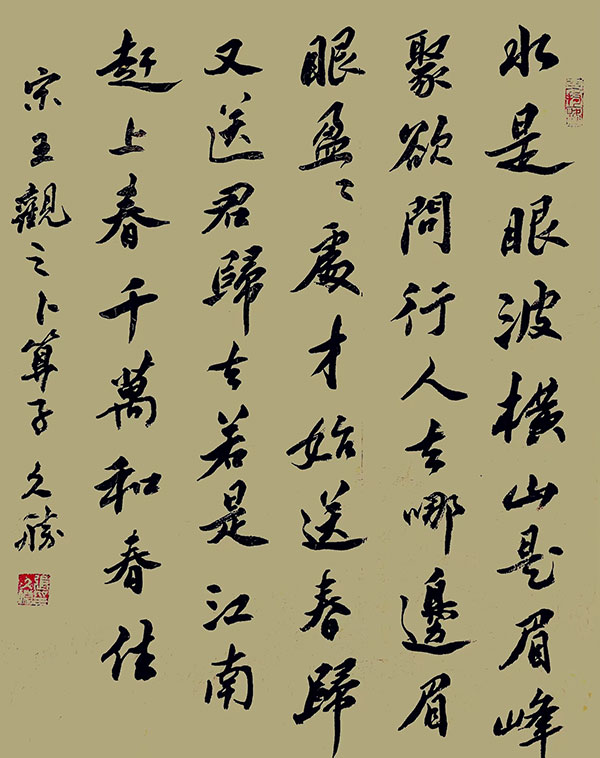 水是眼波橫山是眉峰
聚欲問行人去哪邊眉
眼盈〻處才始送春歸
又送君歸去若是江南
赶上春千萬和春住
宋王觀之卜算子 久勝